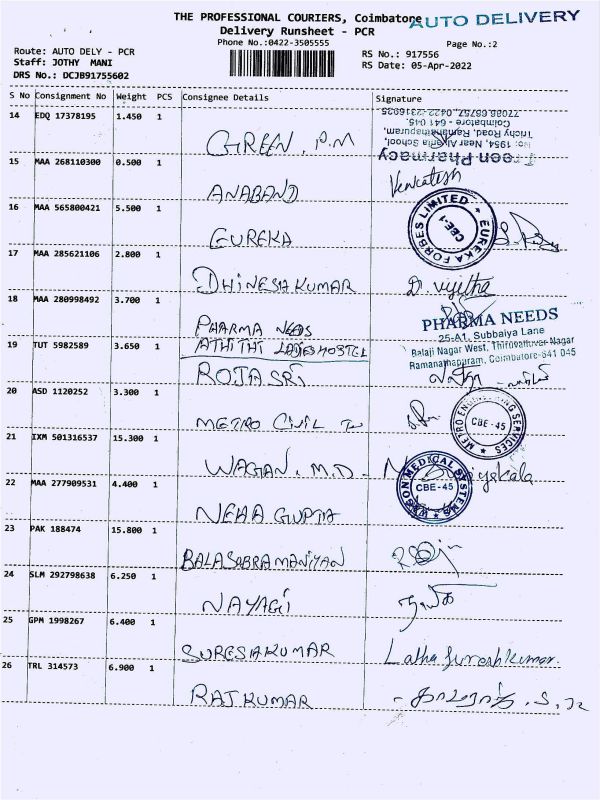 THE PROFESSIONAL COURIERS, Coimbatore
AUTO DELIVERY
Delivery Runsheet - PCR
Phone No.:0422-3505555
Page No.:2
Route: AUTO DELY - PCR
RS No.: 917556
Staff: JOTHY MANI
RS Date: 05-Apr-2022
DRS No.: DCJB91755602
S No Consignment No Weight PCS Consignee Details Signature
14 EDQ 17378195 1.450 1
GREEN. P.M
Pharmacy
No: 1954, Near Alvernia School,
Trichy Road, Ramanathapuram,
Coimbatore - 641 045.
15 MAA 268110300 0.500 1
ANABAND Venkatesh
16 MAA 565800421 5.500 1
EUREKA
EUREKA FORBES LIMITED
CBE-1
17 MAA 285621106 2.800 1
DHINESH KUMAR
18 MAA 280998492 3.700 1
PHARMA NEEDS
PHARMA NEEDS
25-A1, Subbaiya Lane
Balaji Nagar West, Thiruvalluvar Nagar
Ramanathapuram, Coimbatore-641 045
19 TUT 5982589 3.650 1
ATHITHI LADIES HOSTEL
ROJA SRI
20 ASD 1120252 3.300 1
METRO CIVIL
METRO ENGINEERING SERVICES
CBE - 45
21 IXM 501316537 15.300 1
WAGAN. M.D -
MEDICAL SYSTEMS
CBE-45
22 MAA 277909531 4.400 1
NEHA GUPTA
23 PAK 188474 15.800 1
BALASABRAMANIYAN
24 SLM 292798638 6.250 1
NAYAGI
25 GPM 1998267 6.400 1
SURESHKUMAR Latha Sureshkumar.
26 TRL 314573 6.900 1
RAJKUMAR